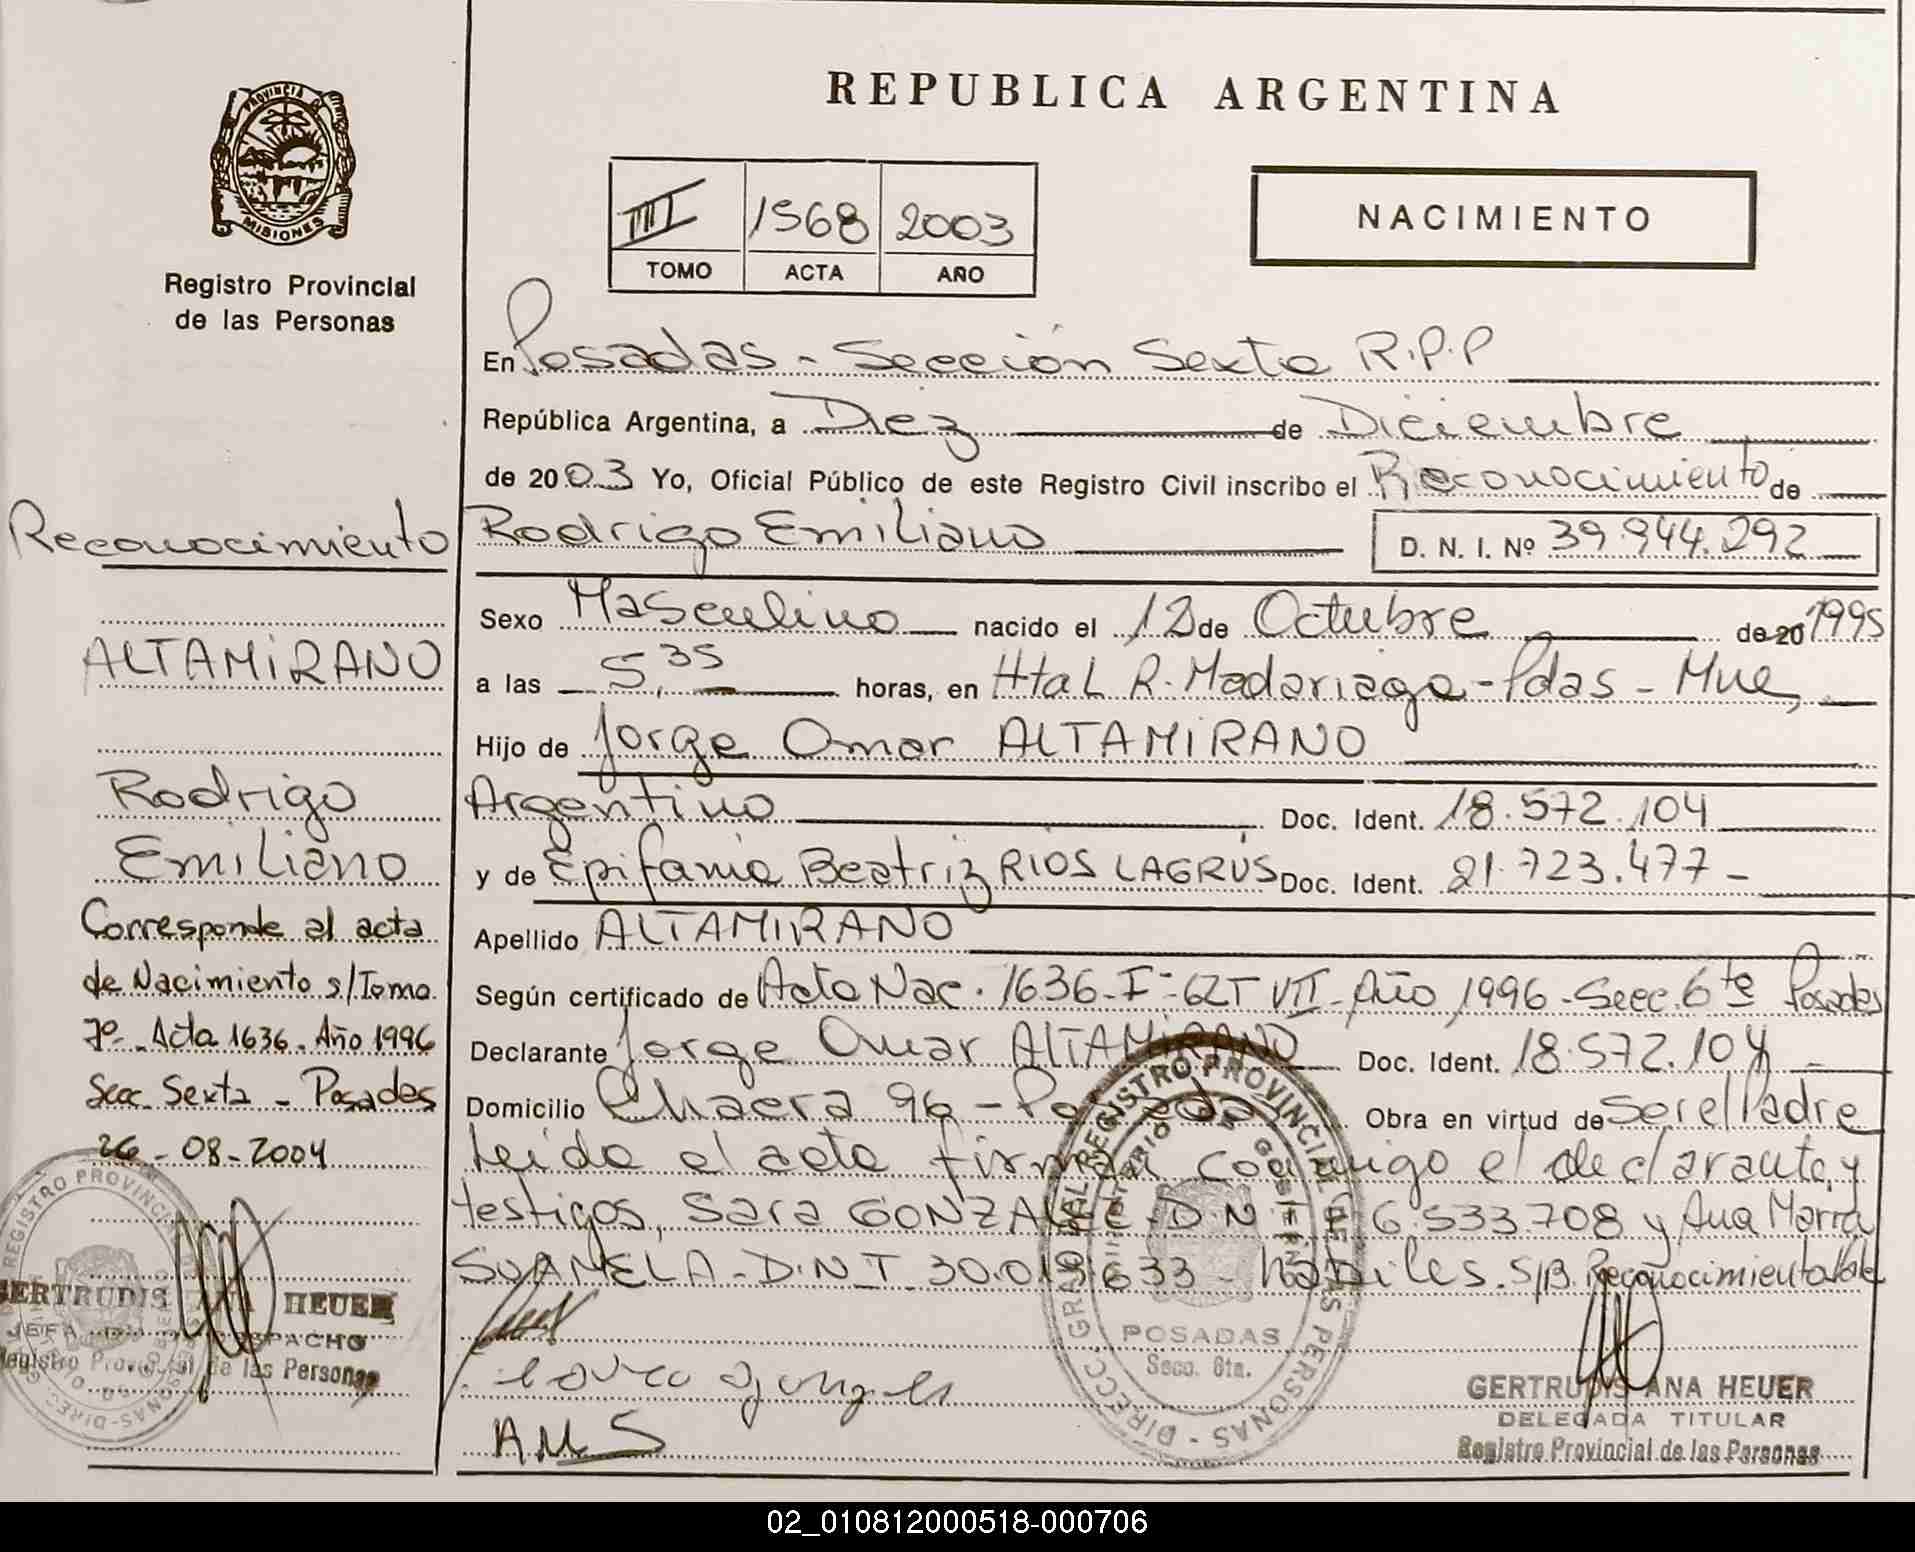 REPUBLICA ARGENTINA
PROVINCIA D
MISIONES
Registro Provincial
de las Personas
III 1568 2003
TOMO ACTA AÑO
NACIMIENTO
En Posadas - Sección Sexta R.P.P
República Argentina, a Diez de Diciembre
de 2003 Yo, Oficial Público de este Registro Civil inscribo el Reconocimiento de
Rodrigo Emiliano D. N. I. Nº 39.944.292
Sexo Masculino nacido el 12 de Octubre de 20 1995
a las 5,35 horas, en Htal R. Madariaga - Pdas - Mnes
Hijo de Jorge Omar ALTAMIRANO
Argentino Doc. Ident. 18.572.104
y de Epifania Beatriz RIOS LAGRUS Doc. Ident. 21.723.477 -
Apellido ALTAMIRANO
Según certificado de Acta Nac. 1636 - Fº 62 T VII - Año 1996 - Secc. 6ta Posadas
Declarante Jorge Omar ALTAMIRANO Doc. Ident. 18.572.104 -
Domicilio Chacra 96 - Posadas Obra en virtud de Ser el Padre
Leida el acta firman conmigo el declarante, y
testigos, Sara GONZALEZ - D.N.I 6.533.708 y Ana Maria
D.N.I 30.013.633 - habiles. S/B. Reconocimiento Vale
AMS
Reconocimiento
ALTAMIRANO
Rodrigo
Emiliano
Corresponde al acta
de Nacimiento s/Tomo
7º - Acta 1636 - Año 1996
Secc. Sexta - Posadas
26 - 08 - 2004
GERTRUDIS ANA HEUER
JEFA DESPACHO
Registro Provincial de las Personas
POSADAS
Secc. 6ta.
GERTRUDIS ANA HEUER
DELEGADA TITULAR
Registro Provincial de las Personas
02_010812000518-000706